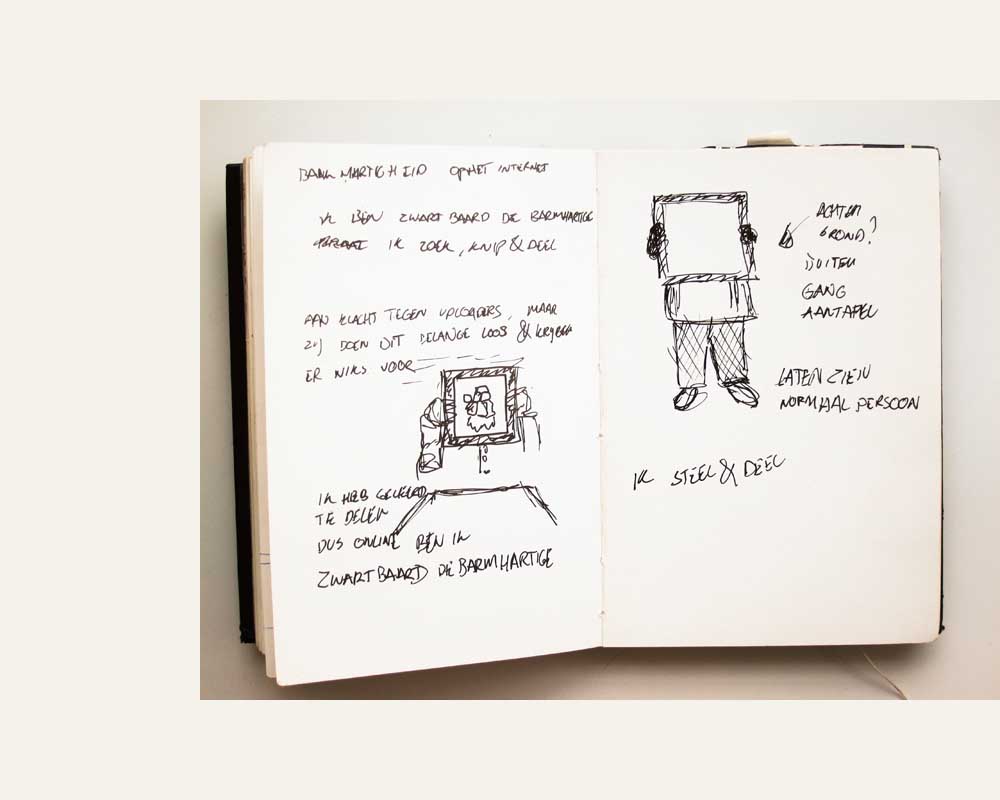 OP HET INTERNET
IK BEN ZWART BAARD DE BARMHARTIGE
IK ZOEK, KNIP & DEEL
AAN KLACHT TEGEN UPLOADERS, MAAR
ZIJ DOEN DIT BELANGE LOOS & KRIJGEN
ER NIKS VOOR
IK HEB GELEERD
TE DELEN
DUS ONLINE BEN IK
ZWART BAARD DE BARMHARTIGE
ACHTER
GROND?
BUITEN
GANG
AAN TAFEL
LATEN ZIEN
NORMAAL PERSOON
IK STEEL & DEEL